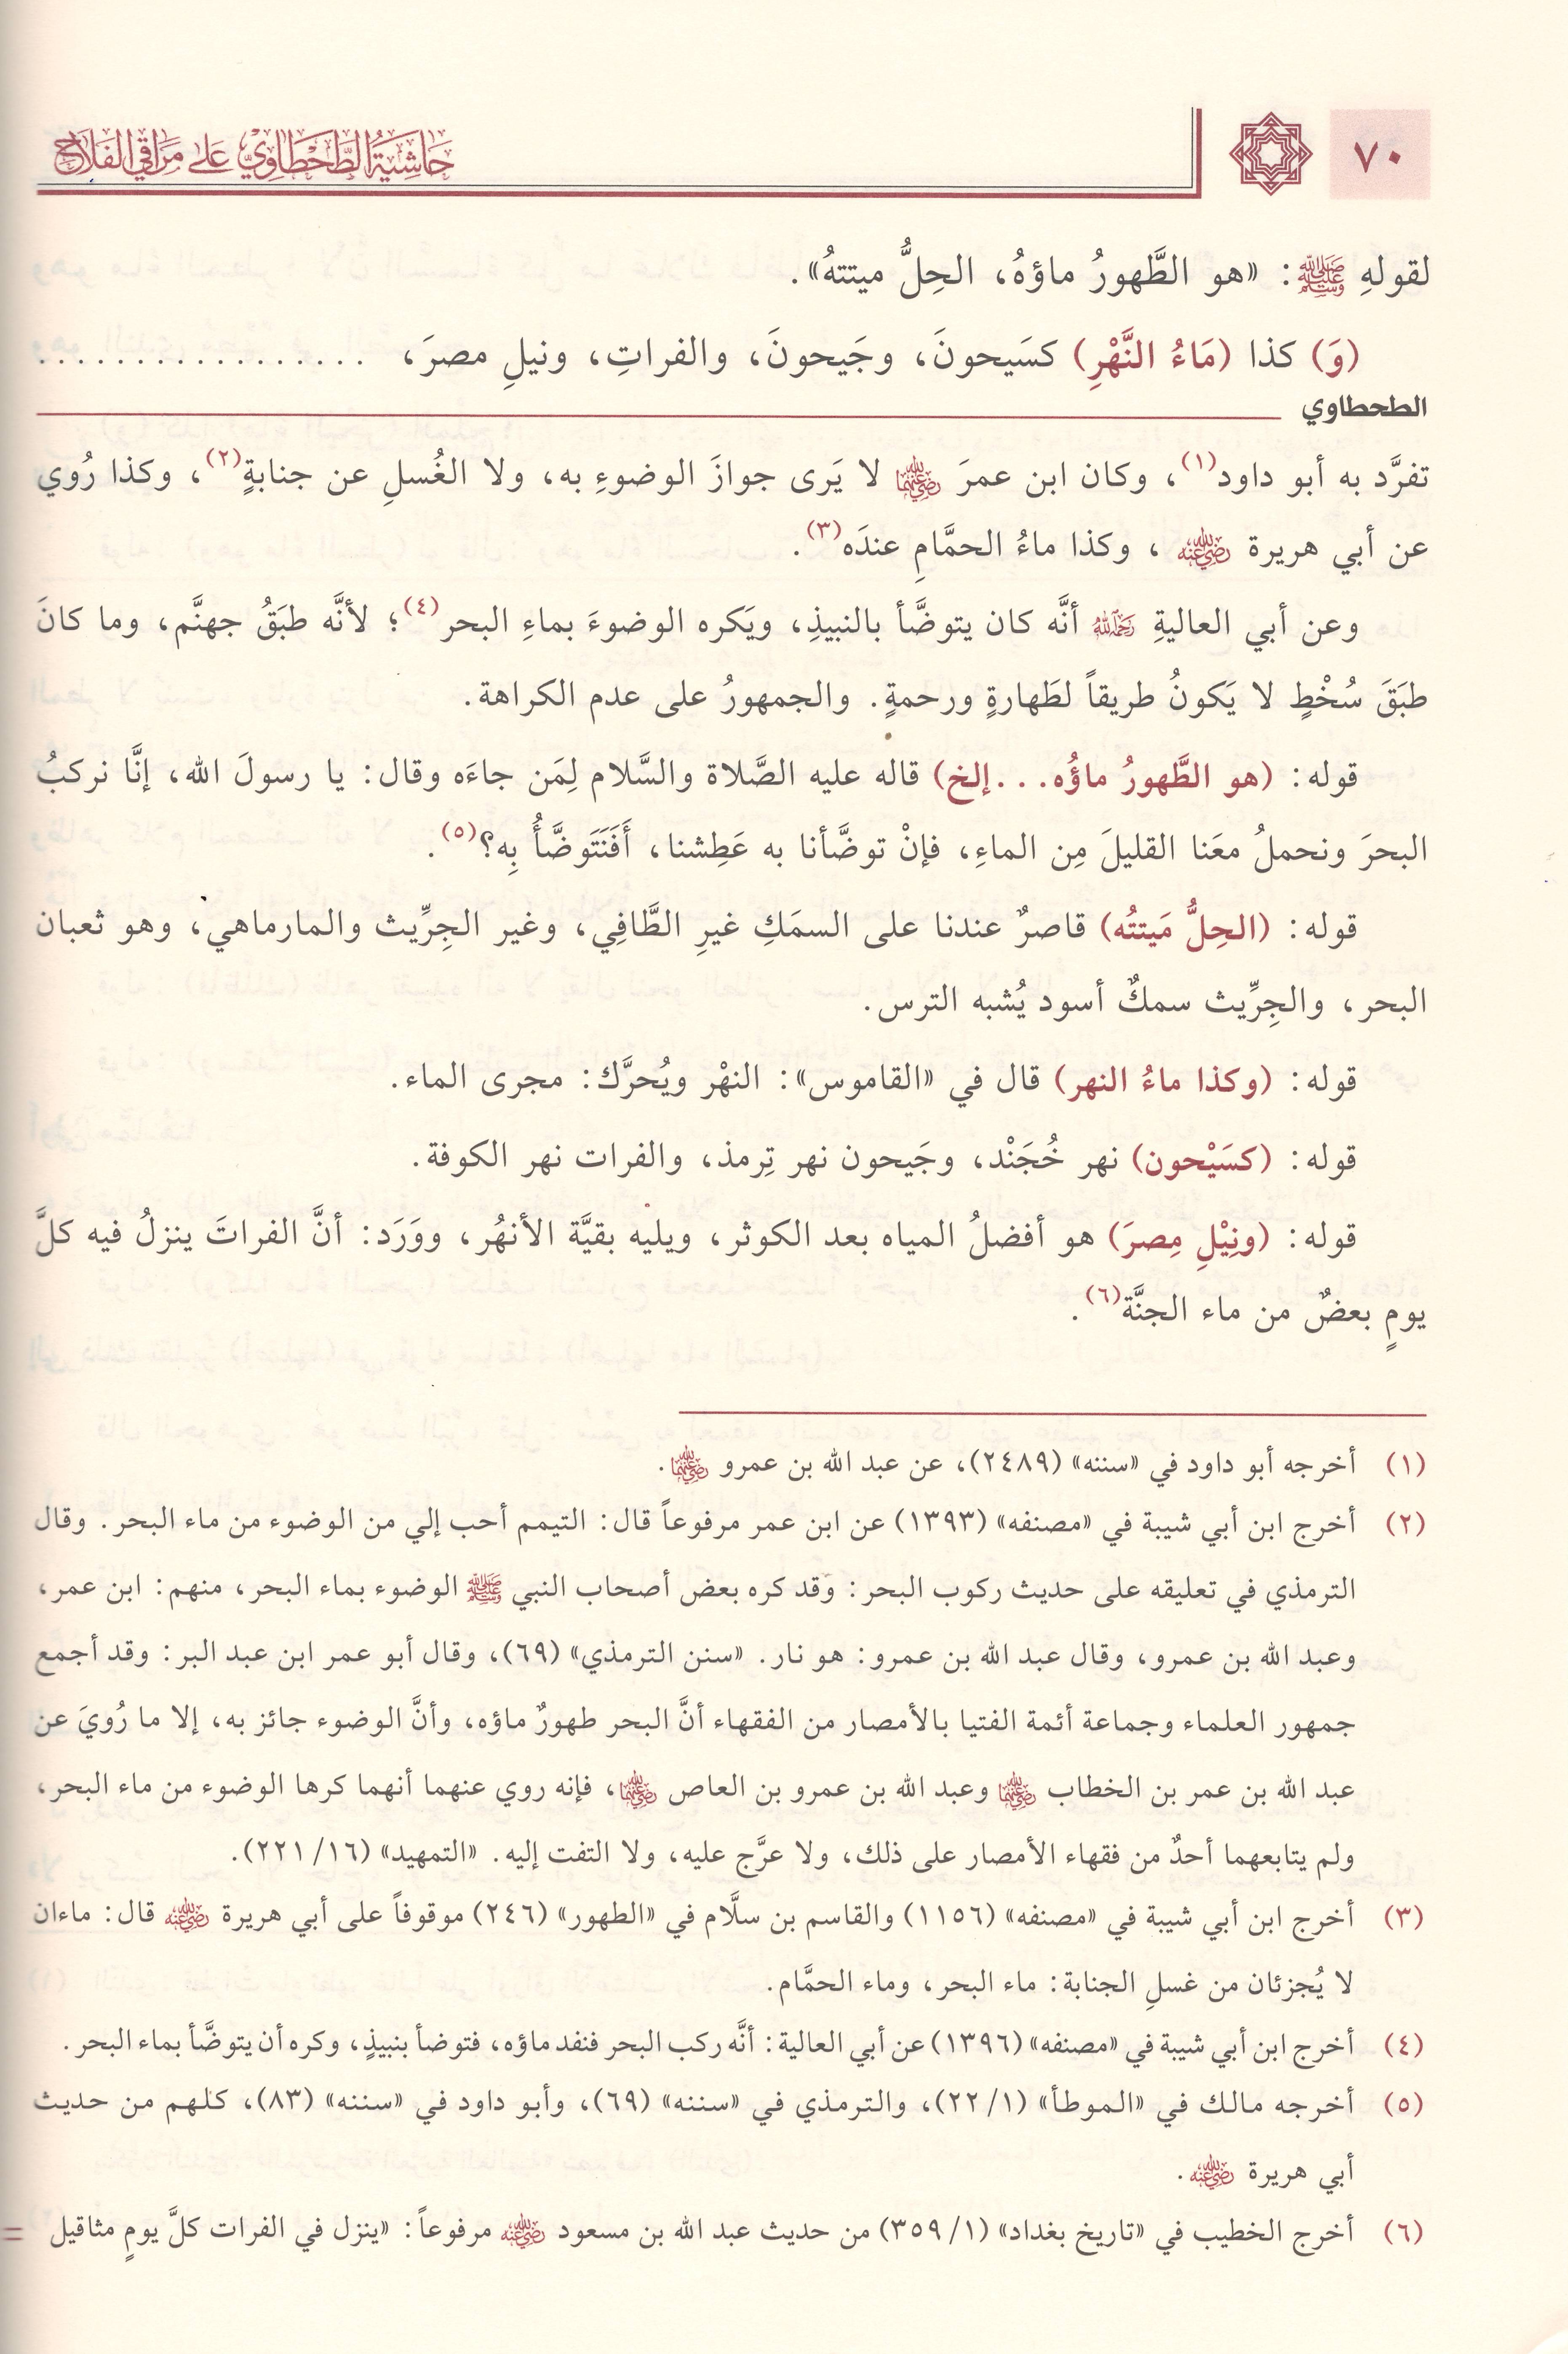 ٧٠
حَاشِيَةُ الطَّحْطَاوِيِّ عَلى مَرَاقي الفَلَاح
لقولهِ ﷺ: «هو الطَّهورُ ماؤهُ، الحِلُّ ميتتهُ».
(وَ) كذا (مَاءُ النَّهْرِ) كسَيحونَ، وجَيحونَ، والفراتِ، ونيلِ مصرَ، . . . . . . . . . . . . . . . . .
الطحطاوي
تفرَّد به أبو داود(١)، وكان ابن عمرَ رضي الله عنهما لا يَرى جوازَ الوضوءِ به، ولا الغُسلِ عن جنابةٍ(٢)، وكذا رُوي
عن أبي هريرة رضي الله عنه، وكذا ماءُ الحمَّامِ عندَه(٣).
وعن أبي العاليةِ رحمه الله أنَّه كان يتوضَّأ بالنبيذِ، ويَكره الوضوءَ بماءِ البحر(٤)؛ لأنَّه طبَقُ جهنَّم، وما كانَ
طبَقَ سُخْطٍ لا يَكونُ طريقاً لطَهارةٍ ورحمةٍ. والجمهورُ على عدم الكراهة.
قوله: (هو الطَّهورُ ماؤُه. . .إلخ) قاله عليه الصَّلاة والسَّلام لِمَن جاءَه وقال: يا رسولَ الله، إنَّا نركبُ
البحرَ ونحملُ معَنا القليلَ مِن الماءِ، فإنْ توضَّأنا به عَطِشنا، أَفَنَتَوضَّأُ بِه؟(٥).
قوله: (الحِلُّ مَيتتُه) قاصرٌ عندنا على السمَكِ غيرِ الطَّافِي، وغير الجِرِّيث والمارماهي، وهو ثعبان
البحر، والجِرِّيث سمكٌ أسود يُشبه الترس.
قوله: (وكذا ماءُ النهر) قال في «القاموس»: النهْر ويُحرَّك: مجرى الماء.
قوله: (كسَيْحون) نهر خُجَنْد، وجَيحون نهر تِرمذ، والفرات نهر الكوفة.
قوله: (ونِيْلِ مِصرَ) هو أفضلُ المياه بعد الكوثر، ويليه بقيَّة الأنهُر، ووَرَد: أنَّ الفراتَ ينزلُ فيه كلَّ
يومٍ بعضٌ من ماء الجنَّة(٦).
(١) أخرجه أبو داود في «سننه» (٢٤٨٩)، عن عبد الله بن عمرو رضي الله عنهما.
(٢) أخرج ابن أبي شيبة في «مصنفه» (١٣٩٣) عن ابن عمر مرفوعاً قال: التيمم أحب إلي من الوضوء من ماء البحر. وقال
الترمذي في تعليقه على حديث ركوب البحر: وقد كره بعض أصحاب النبي ﷺ الوضوء بماء البحر، منهم: ابن عمر،
وعبد الله بن عمرو، وقال عبد الله بن عمرو: هو نار. «سنن الترمذي» (٦٩)، وقال أبو عمر ابن عبد البر: وقد أجمع
جمهور العلماء وجماعة أئمة الفتيا بالأمصار من الفقهاء أنَّ البحر طهورٌ ماؤه، وأنَّ الوضوء جائز به، إلا ما رُويَ عن
عبد الله بن عمر بن الخطاب رضي الله عنهما وعبد الله بن عمرو بن العاص رضي الله عنهما، فإنه روي عنهما أنهما كرها الوضوء من ماء البحر،
ولم يتابعهما أحدٌ من فقهاء الأمصار على ذلك، ولا عرَّج عليه، ولا التفت إليه. «التمهيد» (١٦/ ٢٢١).
(٣) أخرج ابن أبي شيبة في «مصنفه» (١١٥٦) والقاسم بن سلَّام في «الطهور» (٢٤٦) موقوفاً على أبي هريرة رضي الله عنه قال: ماءان
لا يُجزئان من غسلِ الجنابة: ماء البحر، وماء الحمَّام.
(٤) أخرج ابن أبي شيبة في «مصنفه» (١٣٩٦) عن أبي العالية: أنَّه ركب البحر فنفد ماؤه، فتوضأ بنبيذٍ، وكره أن يتوضَّأ بماء البحر.
(٥) أخرجه مالك في «الموطأ» (١/ ٢٢)، والترمذي في «سننه» (٦٩)، وأبو داود في «سننه» (٨٣)، كلهم من حديث
أبي هريرة رضي الله عنه.
(٦) أخرج الخطيب في «تاريخ بغداد» (١/ ٣٥٩) من حديث عبد الله بن مسعود رضي الله عنه مرفوعاً: «ينزل في الفرات كلَّ يومٍ مثاقيل =